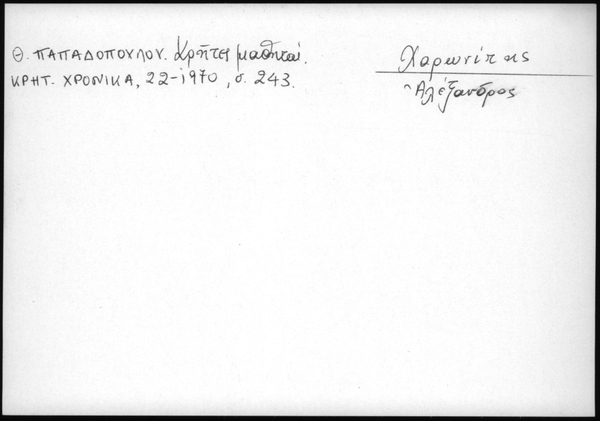 Θ. ΠΑΠΑΔΟΠΟΥΛΟΥ. Κρῆτες μαθηταί.
ΚΡΗΤ. ΧΡΟΝΙΚΑ, 22-1970, σ. 243.
Χαρωνίτης
Ἀλέξανδρος